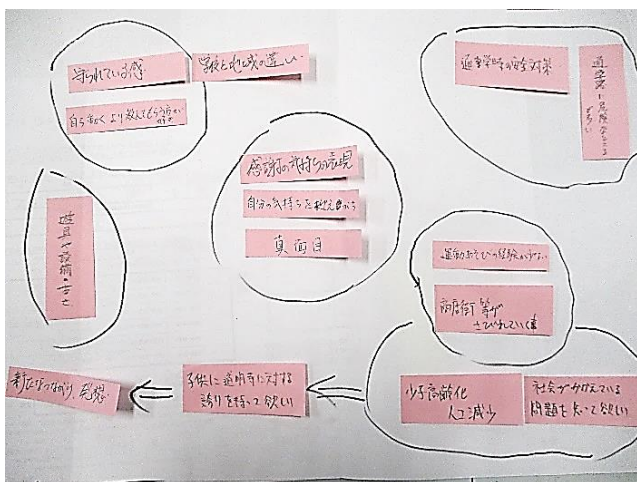 守られている感
学校と地域の違い
自ら動くより教えてもらう方が
通学時の安全対策
通学路に危険なところ
感謝の気持ちの表現
自分の気持ちを
真面目
遊具や設備の古さ
運動あそびの経験が少ない
商店街等が
さびれていく事
少子高齢化
人口減少
社会がかかえている
問題を知って欲しい
子供に道明寺に対する
誇りを持って欲しい
新たなつながり、発想